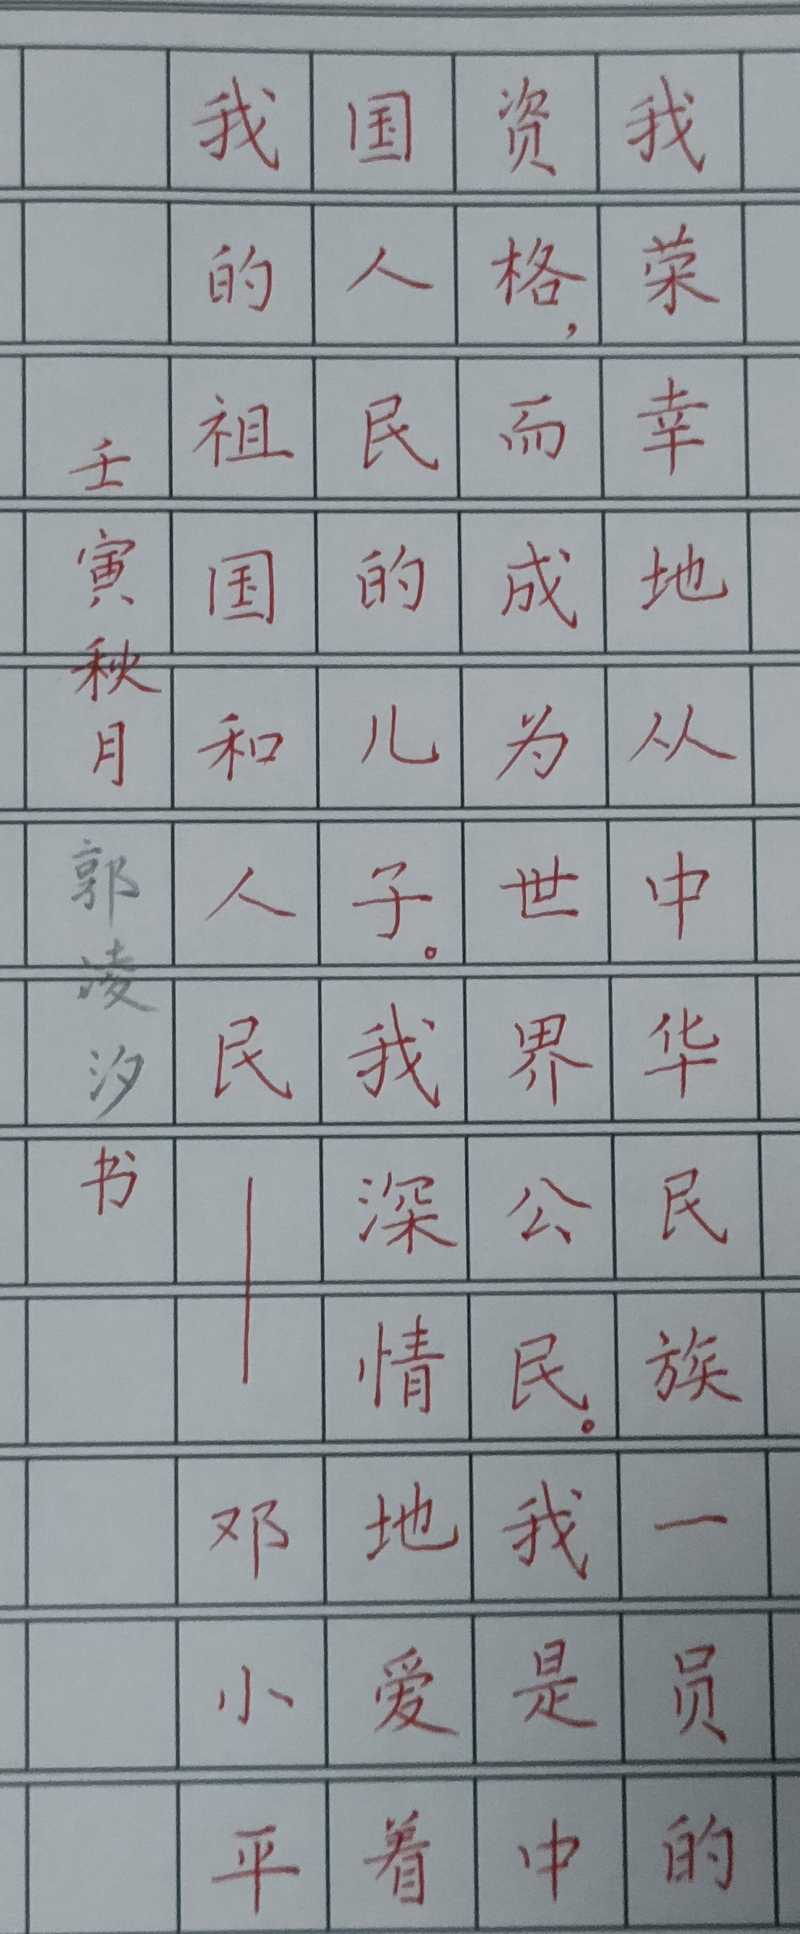 我荣幸地从中华民族一员的
资格，而成为世界公民。我是中
国人民的儿子。我深情地爱着
我的祖国和人民——邓小平
壬寅秋月郭凌汐书